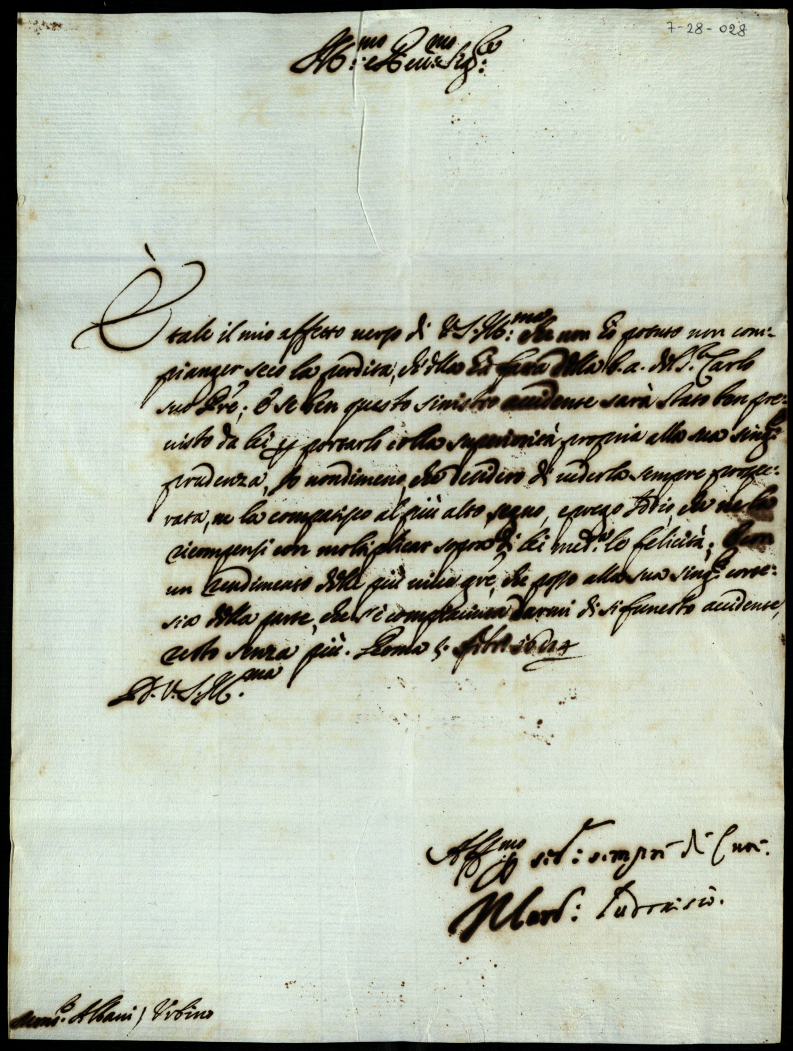 7-28-028
Ill:mo e Reu:mo Sig:re
È tale il mio affetto uerso di V.S. Ill:ma che non hò potuto non com-
pianger seco la perdita, ch'ella hà fatta della b.a. del S.r Carlo
suo Pre; E se ben questo sinistro accidente sarà stato ben pre-
uisto da lei p portarlo colla superiorità propria alla sua sing.
prudenza, Io nondimeno, che desidero di uederla sempre prospe-
rata, ne la compatisco al più alto segno, e prego Iddio che ne la
ricompensi con moltiplicar sopra di lei med.a le felicità; Con
un rendimento delle più uiue gre, che posso alla sua sing. corte-
sia della parte, che si è compiaciuta darmi di si funesto accidente,
resto senza più. Roma 5.
D. V. S. Ill.ma
Aff:mo sempre di Cuore
Ludouisio.
Mons.r Albani / Vrbino